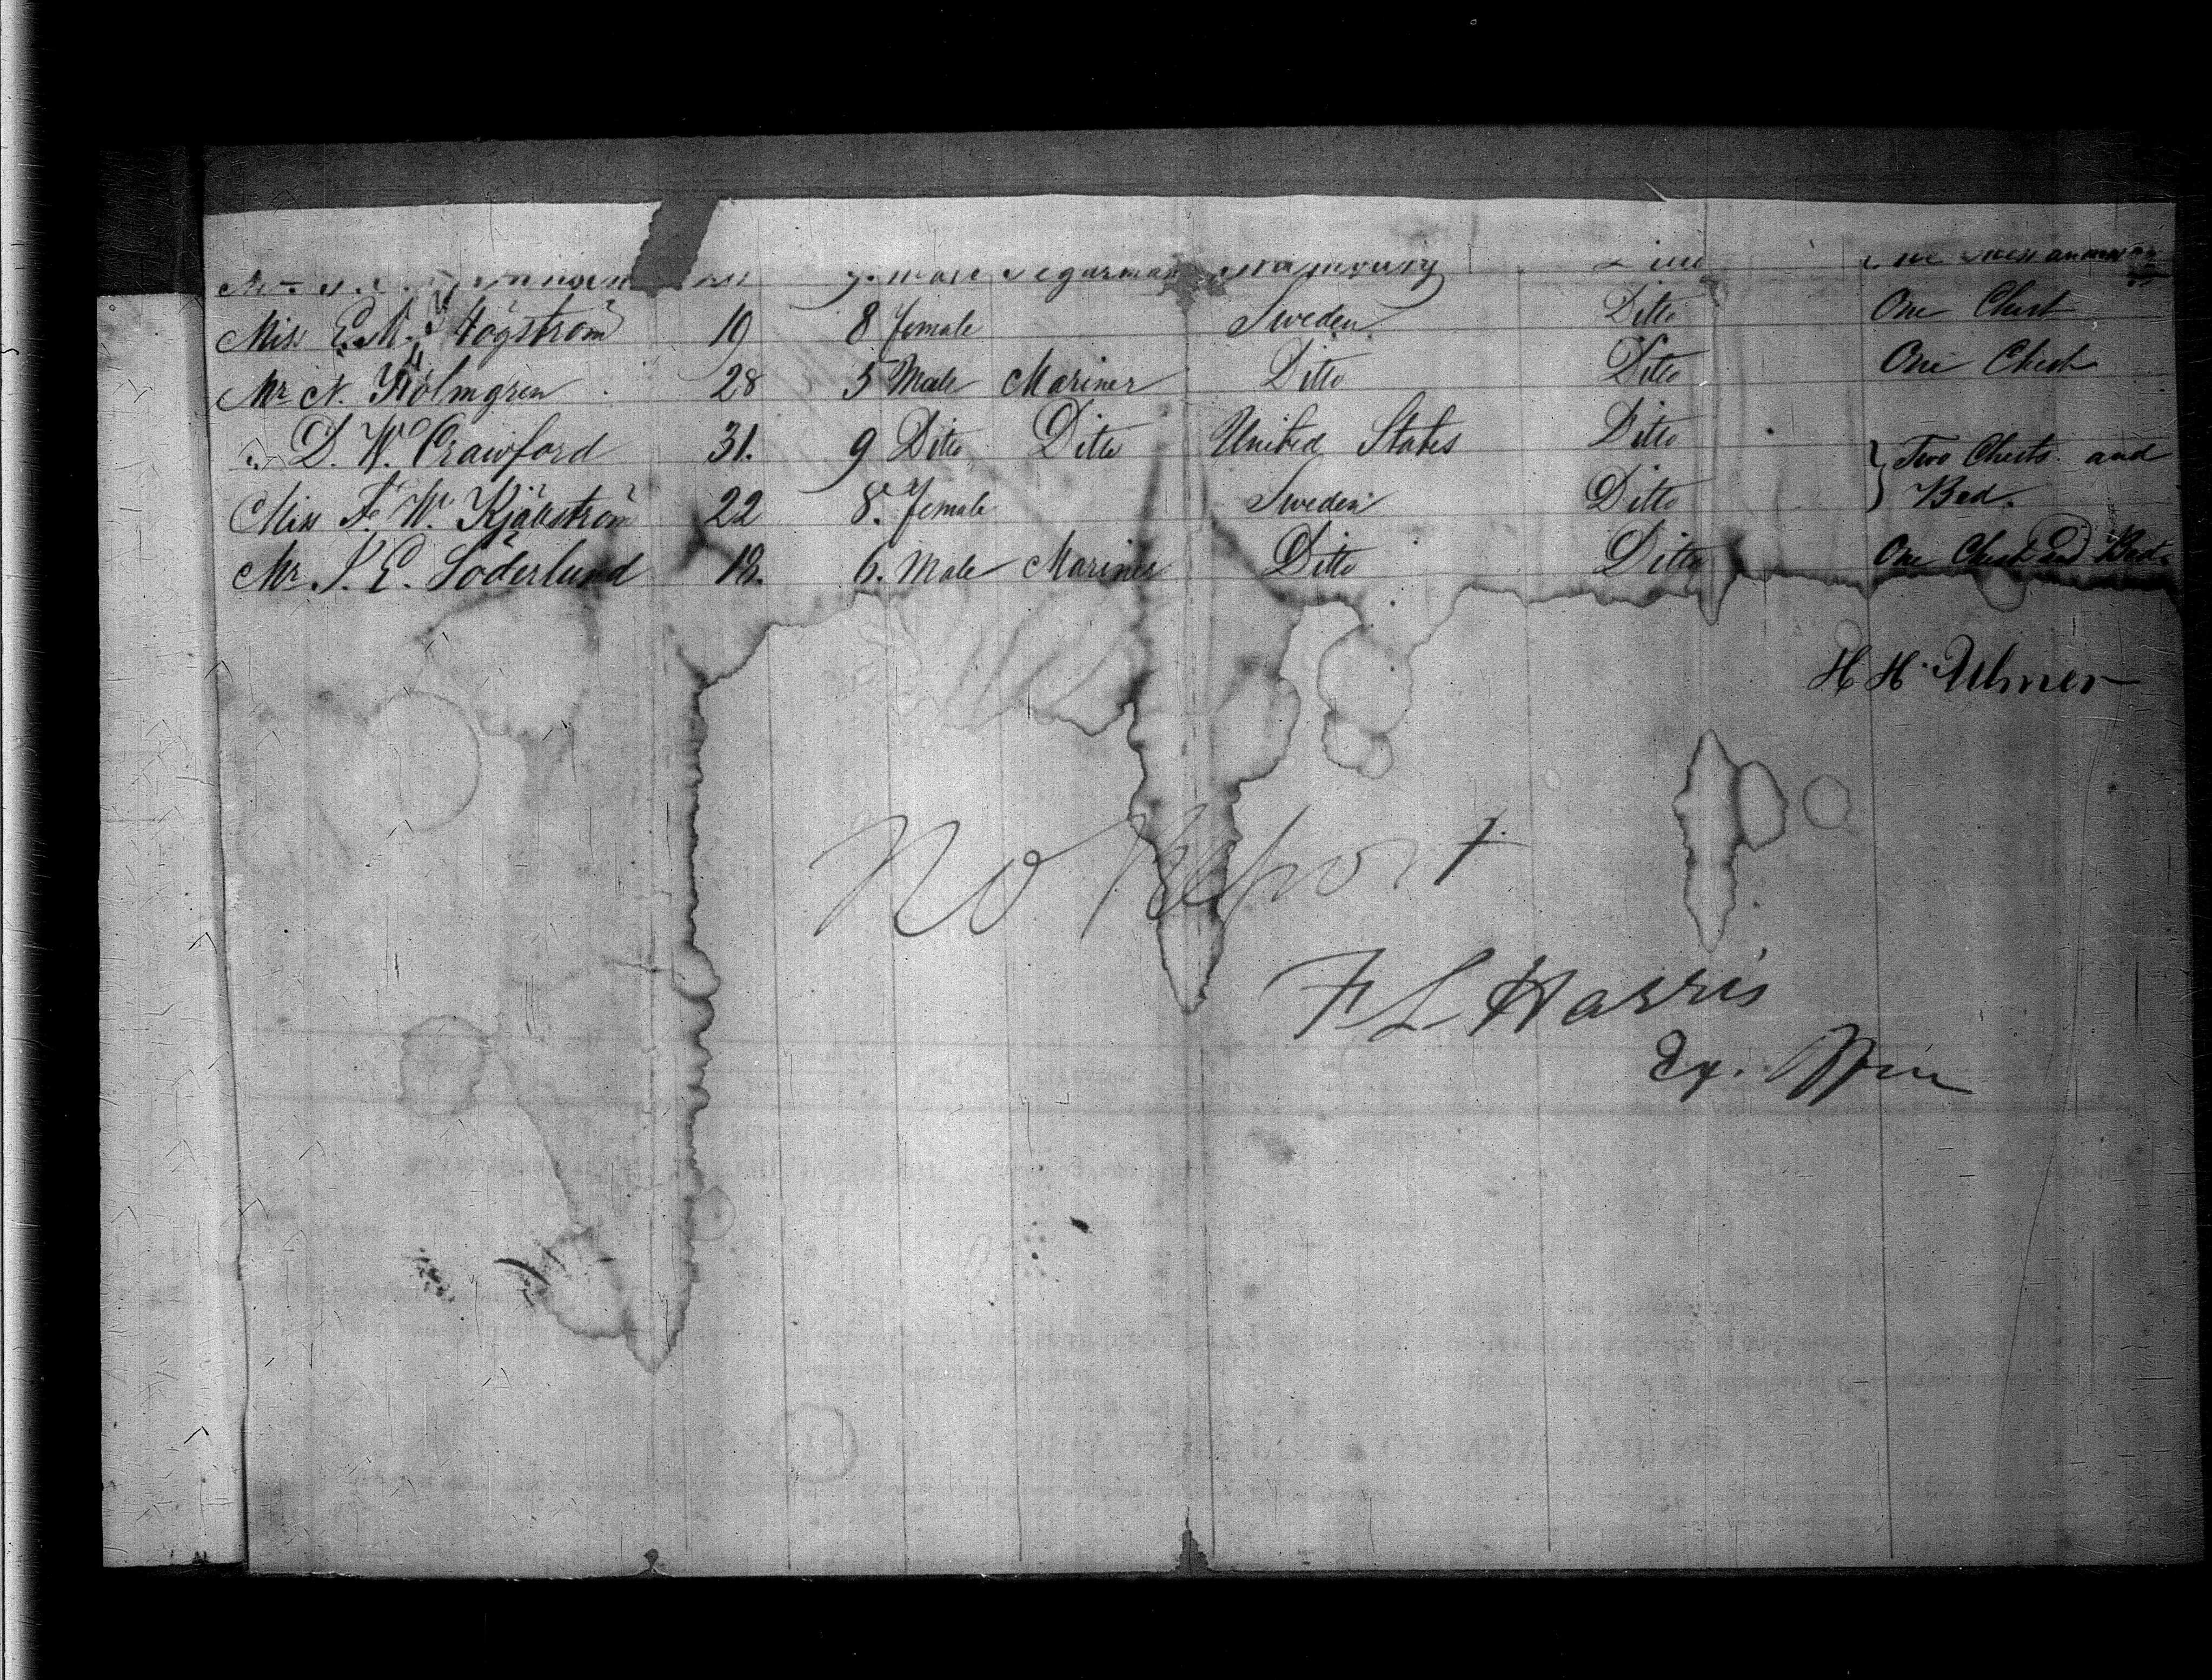 Miss E. M. Högström 19 8 female Sweden Ditto One Chest
Mr N. Holmgren 28 5 Male Mariner Ditto Ditto One Chest
D. W. Crawford 31. 9 Ditto Ditto United States Ditto } Two Chests and
Miss F. W. Kjällström 22 8. female Sweden Ditto Bed.
Mr. J. E. Söderlund 18. 6. Male Mariner Ditto Ditto One Chest and Bed.
H H Ulmer
No Report
F L Harris